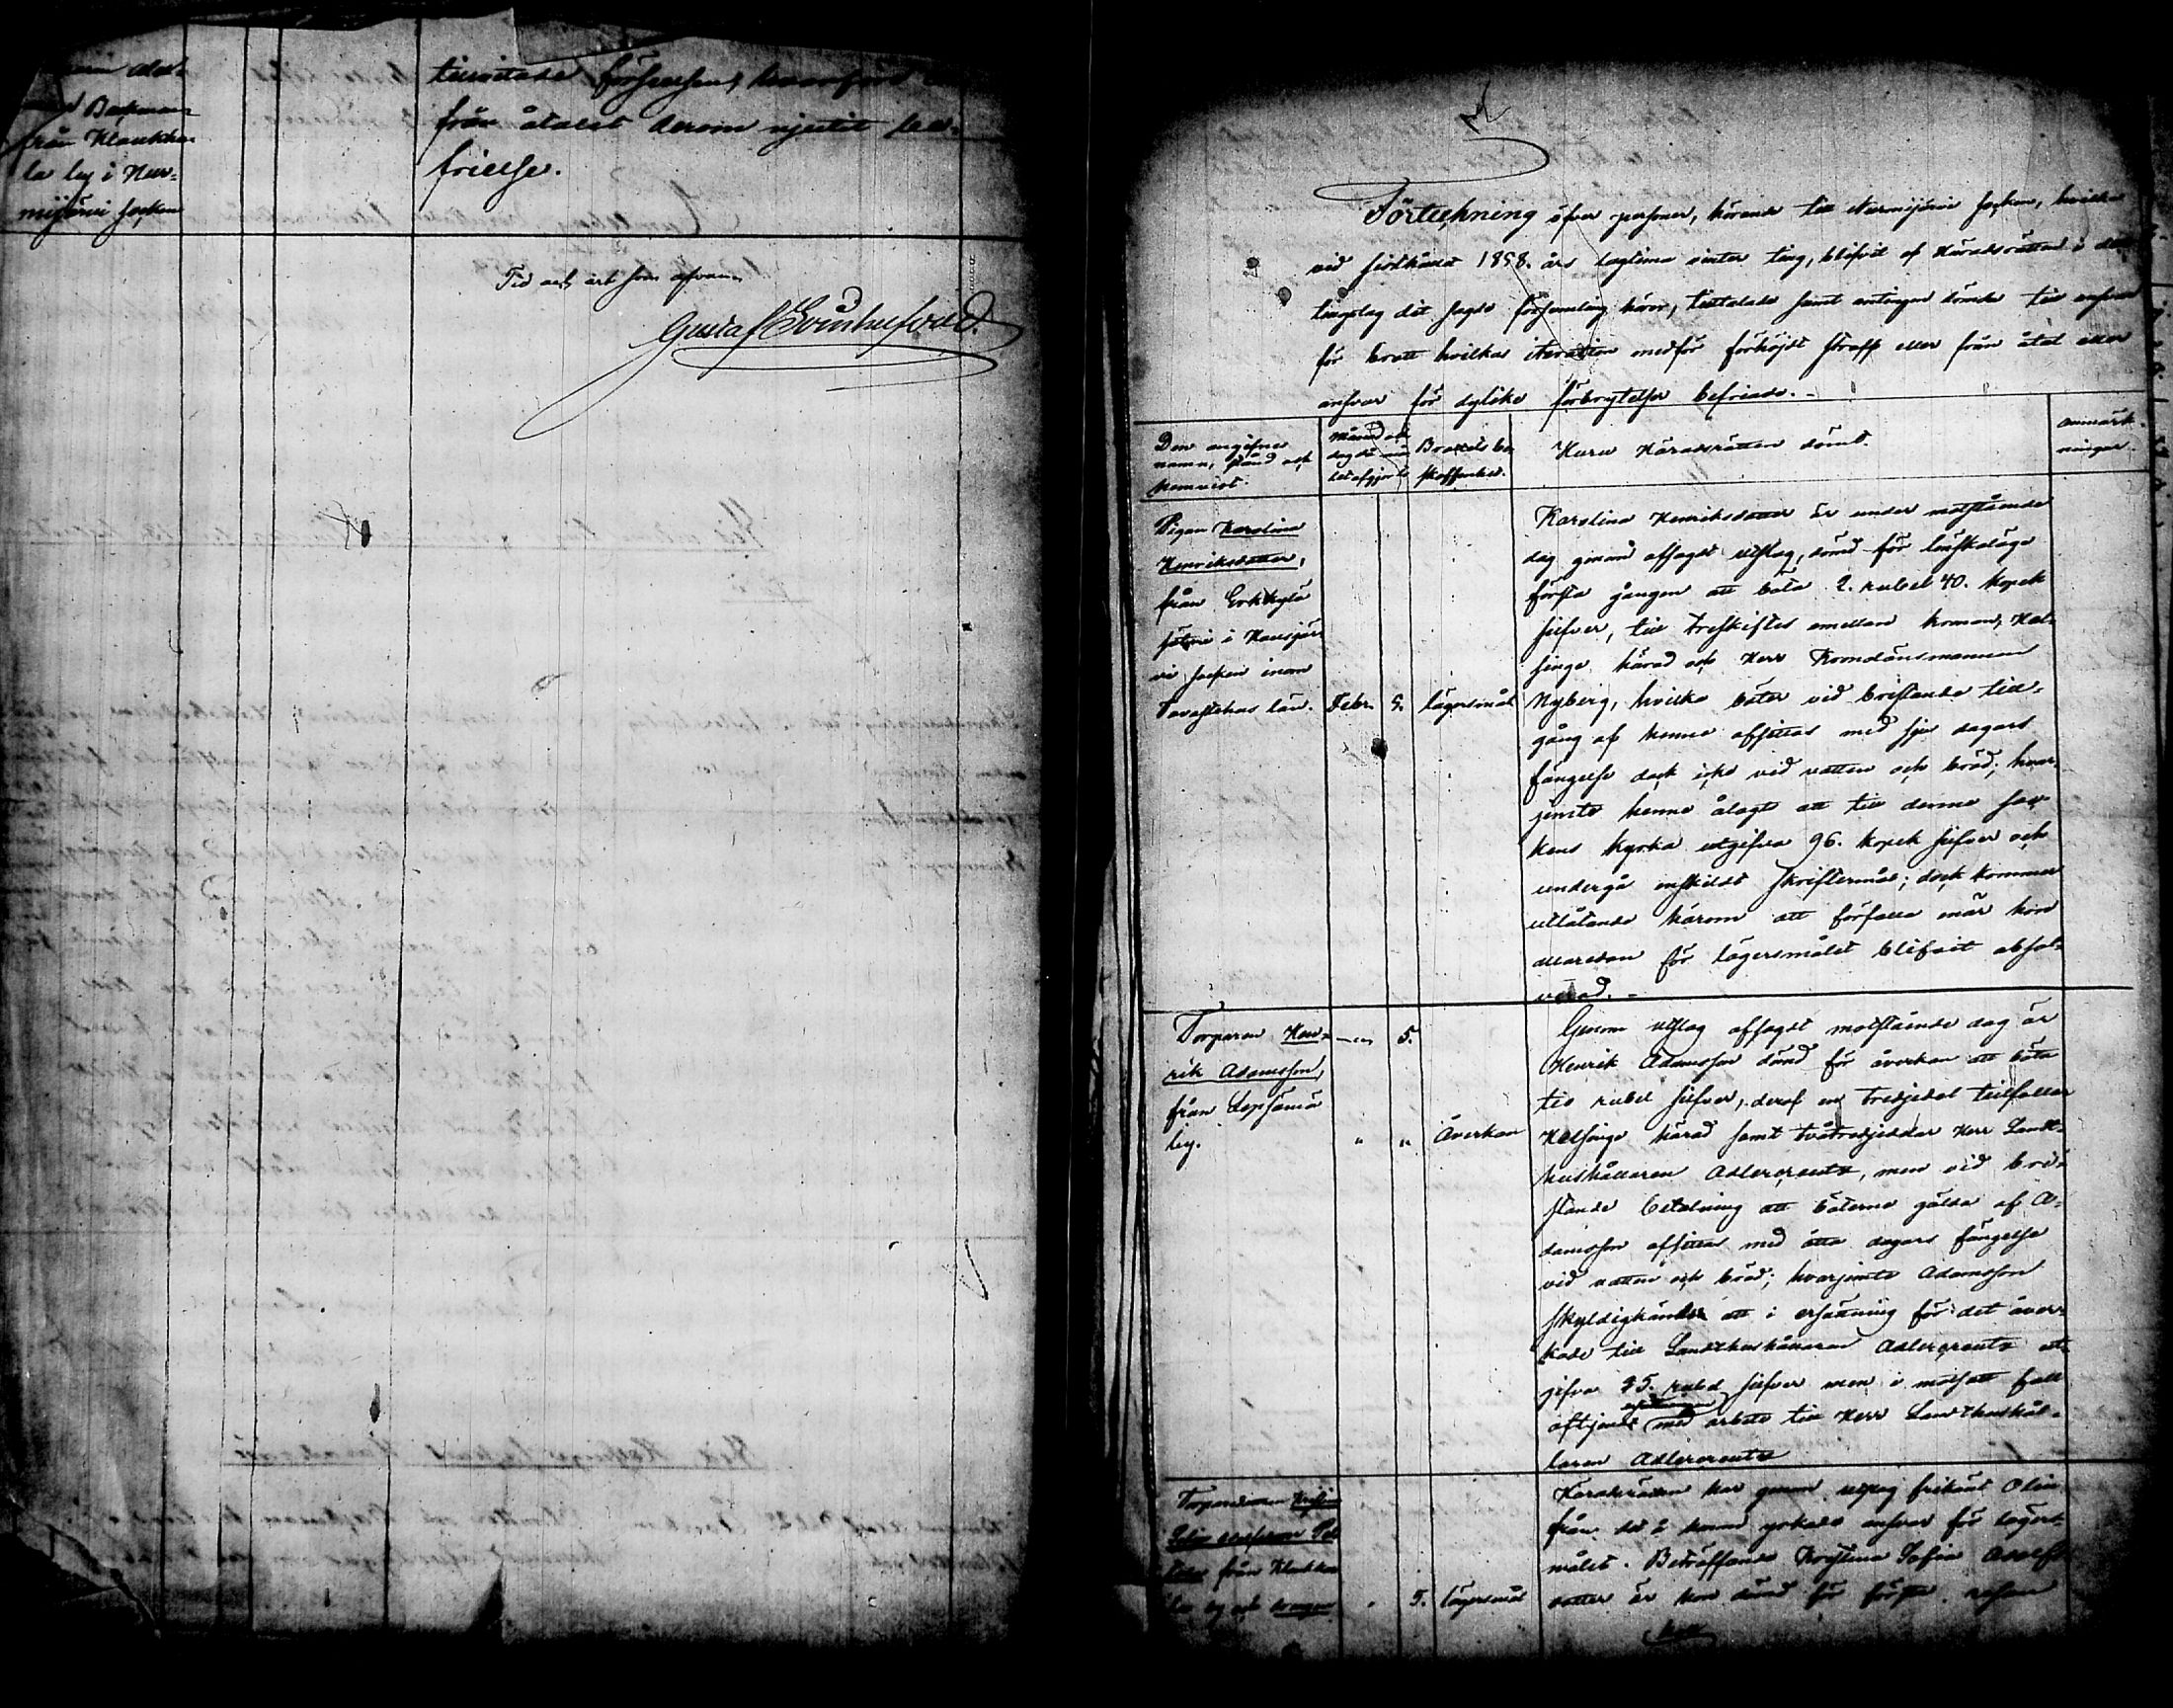 från Klaukka-
la by i Nur-
mijärvi socken
tillvitade förseelsen, hvarföre
från åtalet derom njutit be-
frielse.
Tid och ort som ofvan.
Förteckning öfver personer, hörande till Nurmijärvi socken, hvilka
vid sistlidne 1858. års lagtima vinter ting, blifvit af Häradsrätten i det
tingslag dit sagde församling hörer, tilltalade samt antingen dömde till ansvar
för brott hvilkas iteration medför förhöjdt straff eller från åtal eller
ansvar för dylika förbrytelser befriade.
Den angifnes
namn, stånd och
hemvist.
Månad och
dag då må-
let afgjorts
Brottets be-
skaffenhet.
Huru Häradsrätten dömt.
Anmärk-
ningar.
Pigan Karolina
Henriksdotter,
från Erkkylä
i Hausjär-
vi socken inom
Tavastehus län.
Febr. 5. lägersmål
Karolina Henriksdotter är under motstående
dag genom afsagdt utslag, dömd för lönskaläge
första gången att böta 2. rubel 40. kopek
silfver, till treskiftes emellan kronan, Hel-
singe härad och Herr Kronolänsmannen
Nyberg, hvilka böter vid bristande till-
gång af henne afsittas med sju dagars
fängelse dock icke vid vatten och bröd; hvar-
jemte henne ålagts att till denna soc-
kens kyrka utgifva 96. kopek silfver och
undergå enskildt skriftermål; dock kommer
utlåtande härom att förfalla när hon
allaredan för lägersmålet blifvit absol-
verad.
Torparen Hen-
rik Adamsson,
från Lepsämä
by.
5.
" " Åverkan
Genom utslag afsagdt motstående dag är
Henrik Adamsson dömd för åverkan att böta
tio rubel silfver, deraf en tredjedel tillfaller
Helsinge härad samt två tredjedelar Herr Landt-
hushållaren Adlercreutz, men vid bri-
stande betalning att böterne gälda af A-
damsson afsittas med åtta dagars fängelse
vid vatten och bröd; hvarjemte Adamsson
skyldigkändes att i ersättning för det åver-
kade till Landthushållaren Adlercreutz ut-
gifva 35. rubel silfver men i motsatt fall
aftjena ersättningen med arbete till Herr Landthushål-
laren Adlercreutz
från Klaukka-
la by och
" 5. lägersmål
Häradsrätten har genom utslag frikänt Olin
från det å honom yrkade ansvar för lägers-
målet. Beträffande Kristina Sofia Adolfs
dotter är hon dömd för första resan